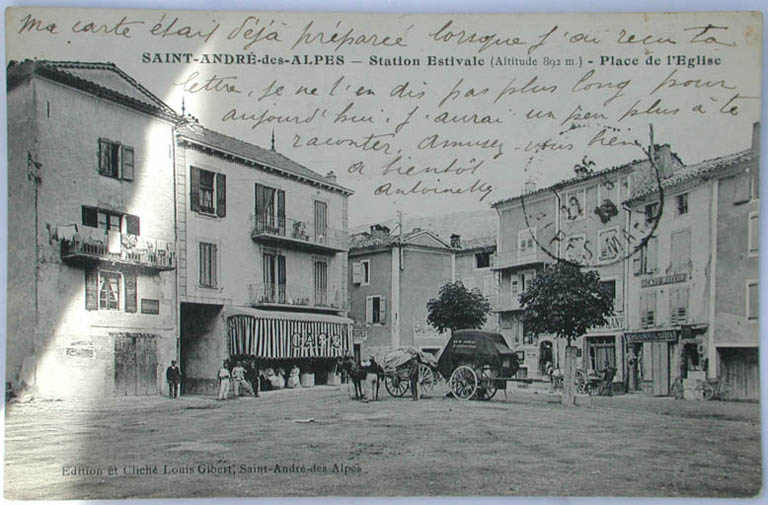 Ma carte était déjà préparée lorsque j'ai reçu ta
SAINT-ANDRÉ-des-ALPES – Station Estivale (Altitude 892 m.) - Place de l'Eglise
lettre, je ne l'en dis pas plus long pour
aujourd'hui, j'aurai un peu plus à te
raconter, Amusez-vous bien
à bientôt
Antoinette
CAFÉ
Edition et Cliché Louis Gibert, Saint-André-des-Alpes